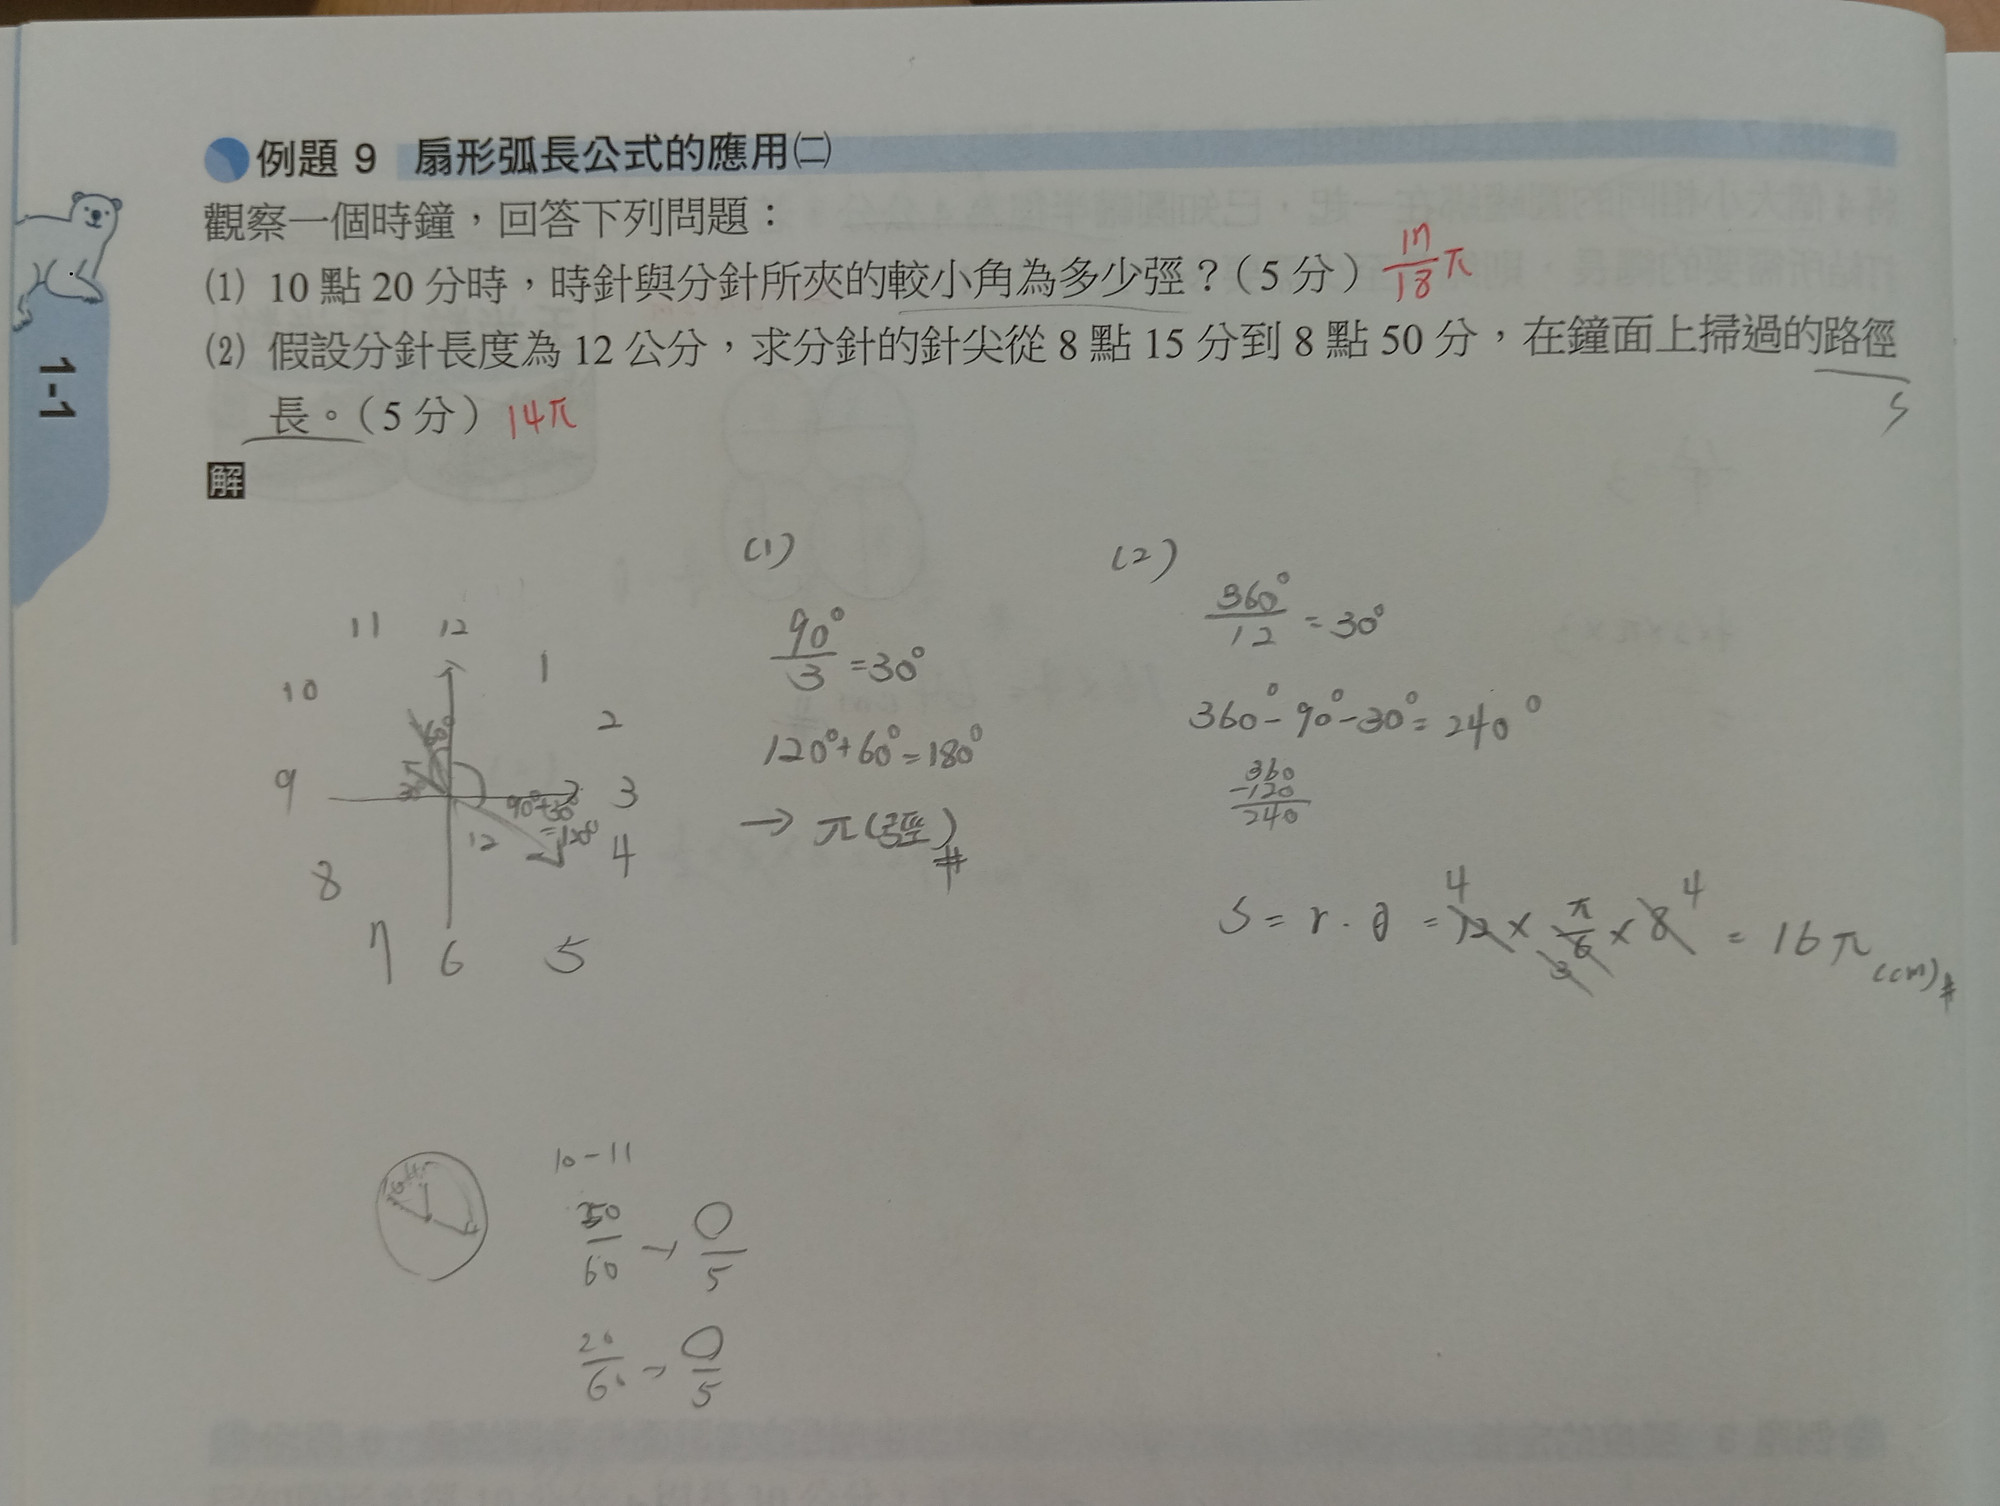 例題 9 扇形弧長公式的應用㈡
觀察一個時鐘，回答下列問題：
⑴ 10 點 20 分時，時針與分針所夾的較小角為多少弳？（5 分） 17/18 π
⑵ 假設分針長度為 12 公分，求分針的針尖從 8 點 15 分到 8 點 50 分，在鐘面上掃過的路徑
S
長。（5 分） 14π
1-1
解
11 12 1
10 2
9 3
8 4
7 6 5
60°
30°
90°+30°
=120°
12
(1)
90°/3 = 30°
120°+60°=180°
→ π(弳)#
(2)
360°/12 = 30°
360°-90°-30°=240°
360
-120
240
S = r · θ = 12 × π/6 × 8 = 16π (cm)#
4 3 4
10-11
/60 → O/5
20/60 → O/5